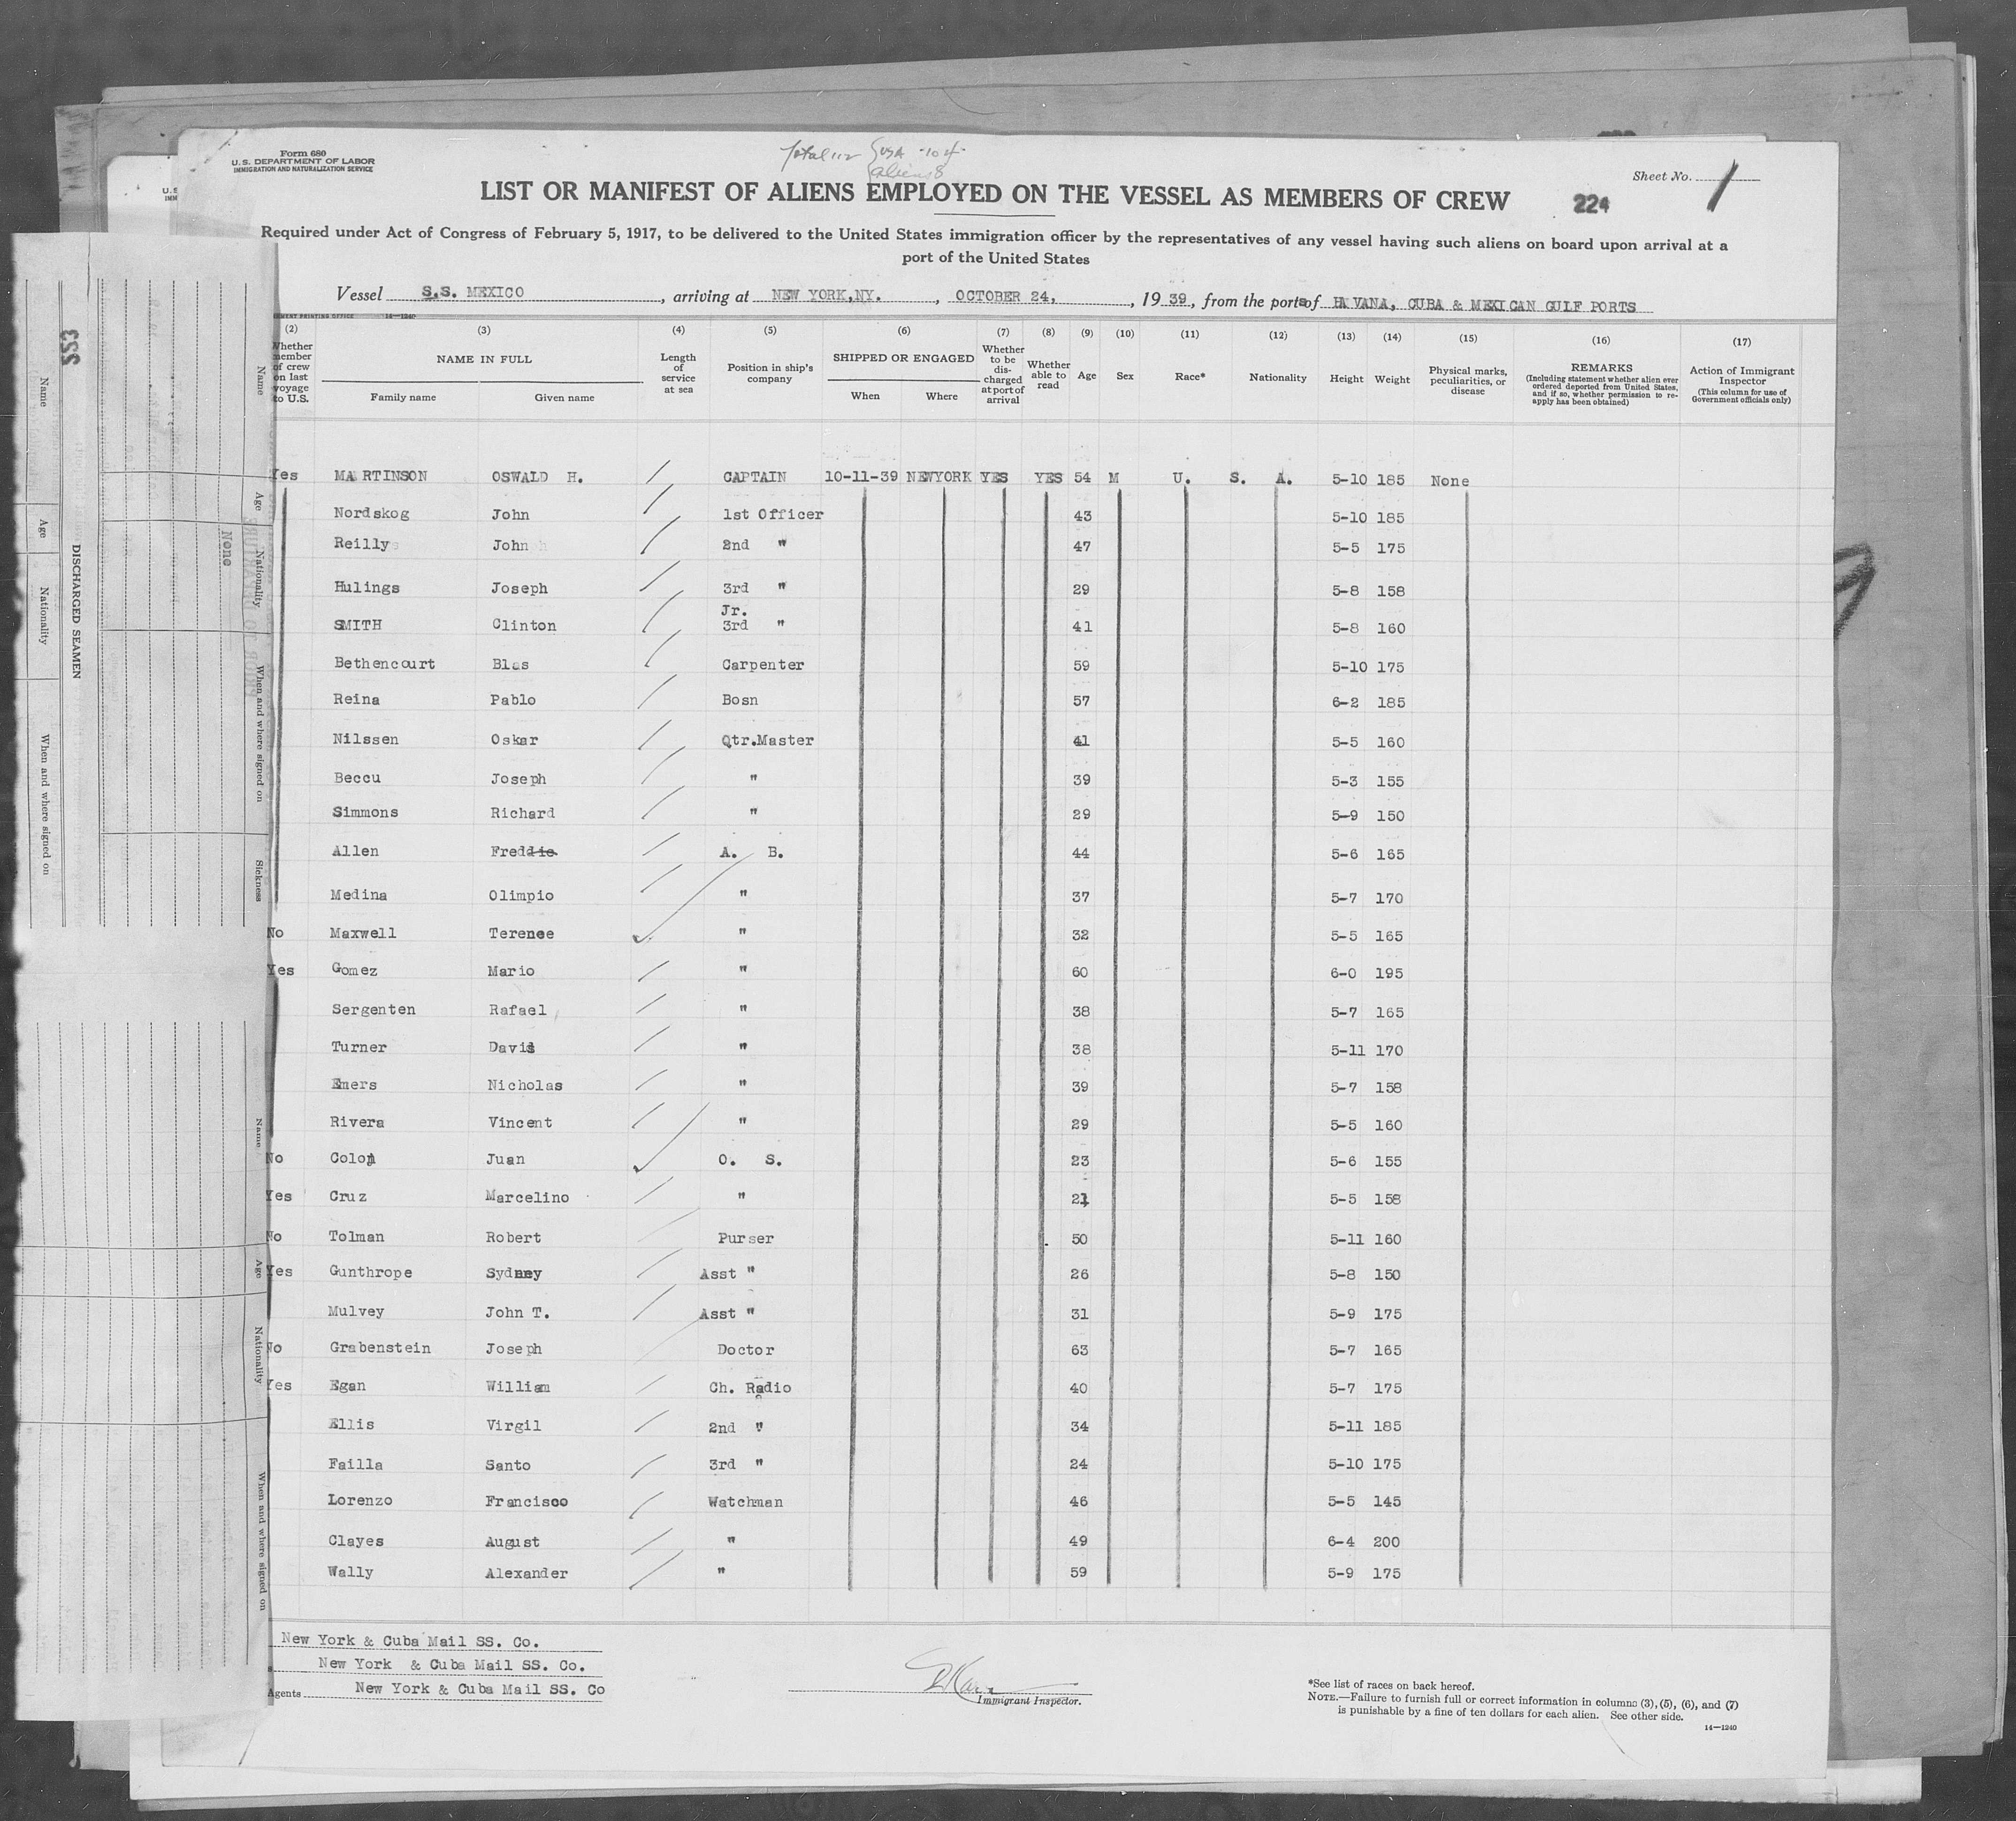 Form 680
U. S. DEPARTMENT OF LABOR
IMMIGRATION AND NATURALIZATION SERVICE
Total 112 USA -104
aliens 8
Sheet No. 1
LIST OR MANIFEST OF ALIENS EMPLOYED ON THE VESSEL AS MEMBERS OF CREW
224
Required under Act of Congress of February 5, 1917, to be delivered to the United States immigration officer by the representatives of any vessel having such aliens on board upon arrival at a
port of the United States
Vessel S.S. MEXICO, arriving at NEW YORK,NY., OCTOBER 24, , 1939, from the ports of HAVANA, CUBA & MEXICAN GULF PORTS
(2) (3) (4) (5) (6) (7) (8) (9) (10) (11) (12) (13) (14) (15) (16) (17)
Whether member of crew on last voyage to U.S.
NAME IN FULL
Family name Given name
Length of service at sea
Position in ship's company
SHIPPED OR ENGAGED
When Where
Whether to be discharged at port of arrival
Whether able to read
Age
Sex
Race*
Nationality
Height
Weight
Physical marks, peculiarities, or disease
REMARKS
(Including statement whether alien ever ordered deported from United States, and if so, whether permission to reapply has been obtained)
Action of Immigrant Inspector
(This column for use of Government officials only)
Yes MARTINSON OSWALD H. CAPTAIN 10-11-39 NEWYORK YES YES 54 M U. S. A. 5-10 185 None
Nordskog John 1st Officer 43 5-10 185
Reilly John 2nd " 47 5-5 175
Hulings Joseph 3rd " 29 5-8 158
SMITH Clinton Jr. 3rd " 41 5-8 160
Bethencourt Blas Carpenter 59 5-10 175
Reina Pablo Bosn 57 6-2 185
Nilssen Oskar Qtr.Master 41 5-5 160
Beccu Joseph " 39 5-3 155
Simmons Richard " 29 5-9 150
Allen Freddie A. B. 44 5-6 165
Medina Olimpio " 37 5-7 170
No Maxwell Terence " 32 5-5 165
Yes Gomez Mario " 60 6-0 195
Sergenten Rafael " 38 5-7 165
Turner David " 38 5-11 170
Emers Nicholas " 39 5-7 158
Rivera Vincent " 29 5-5 160
No Colon Juan O. S. 23 5-6 155
Yes Cruz Marcelino " 21 5-5 158
No Tolman Robert Purser 50 5-11 160
Yes Gunthrope Sydney Asst " 26 5-8 150
Mulvey John T. Asst " 31 5-9 175
No Grabenstein Joseph Doctor 63 5-7 165
Yes Egan William Ch. Radio 40 5-7 175
Ellis Virgil 2nd " 34 5-11 185
Failla Santo 3rd " 24 5-10 175
Lorenzo Francisco Watchman 46 5-5 145
Clayes August " 49 6-4 200
Wally Alexander " 59 5-9 175
New York & Cuba Mail SS. Co.
New York & Cuba Mail SS. Co.
Agents New York & Cuba Mail SS. Co
Immigrant Inspector.
*See list of races on back hereof.
NOTE.—Failure to furnish full or correct information in columns (3), (5), (6), and (7)
is punishable by a fine of ten dollars for each alien. See other side.
14—1240
553
DISCHARGED SEAMEN
Name Age Nationality When and where signed on
Name Age Nationality When and where signed on Sickness
None
Name Age Nationality When and where signed on